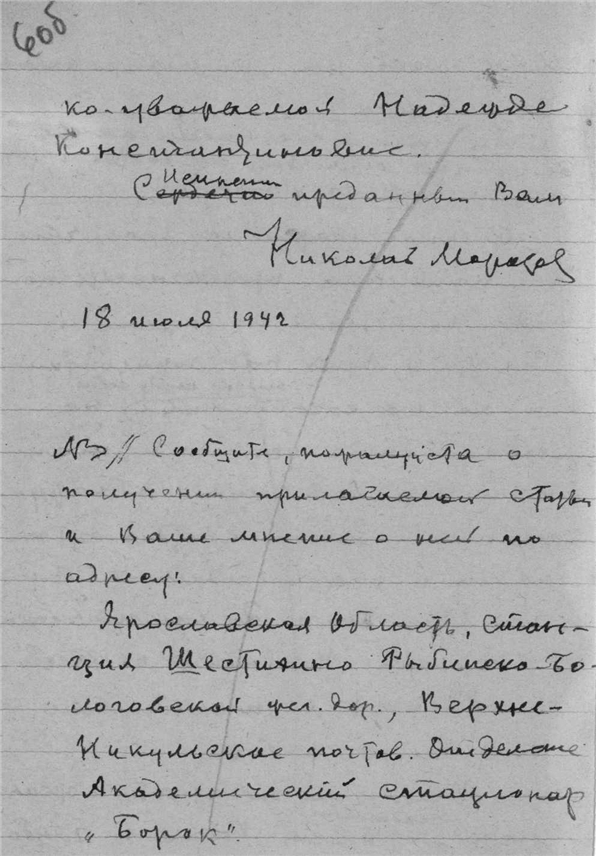 60б
ко-уважаемой Надежде
Константиновне.
Искренне
Сердечно преданный Вам
Николай Морозов
18 июля 1942
NB // Сообщите, пожалуйста о
получении прилагаемой статьи
и Ваше мнение о ней по
адресу:
Ярославская Область, стан-
ция Шестихино Рыбинско-Бо-
логовской жел. дор., Верхне-
Никульское почтов. Отделение
Академический стационар
„Борок".